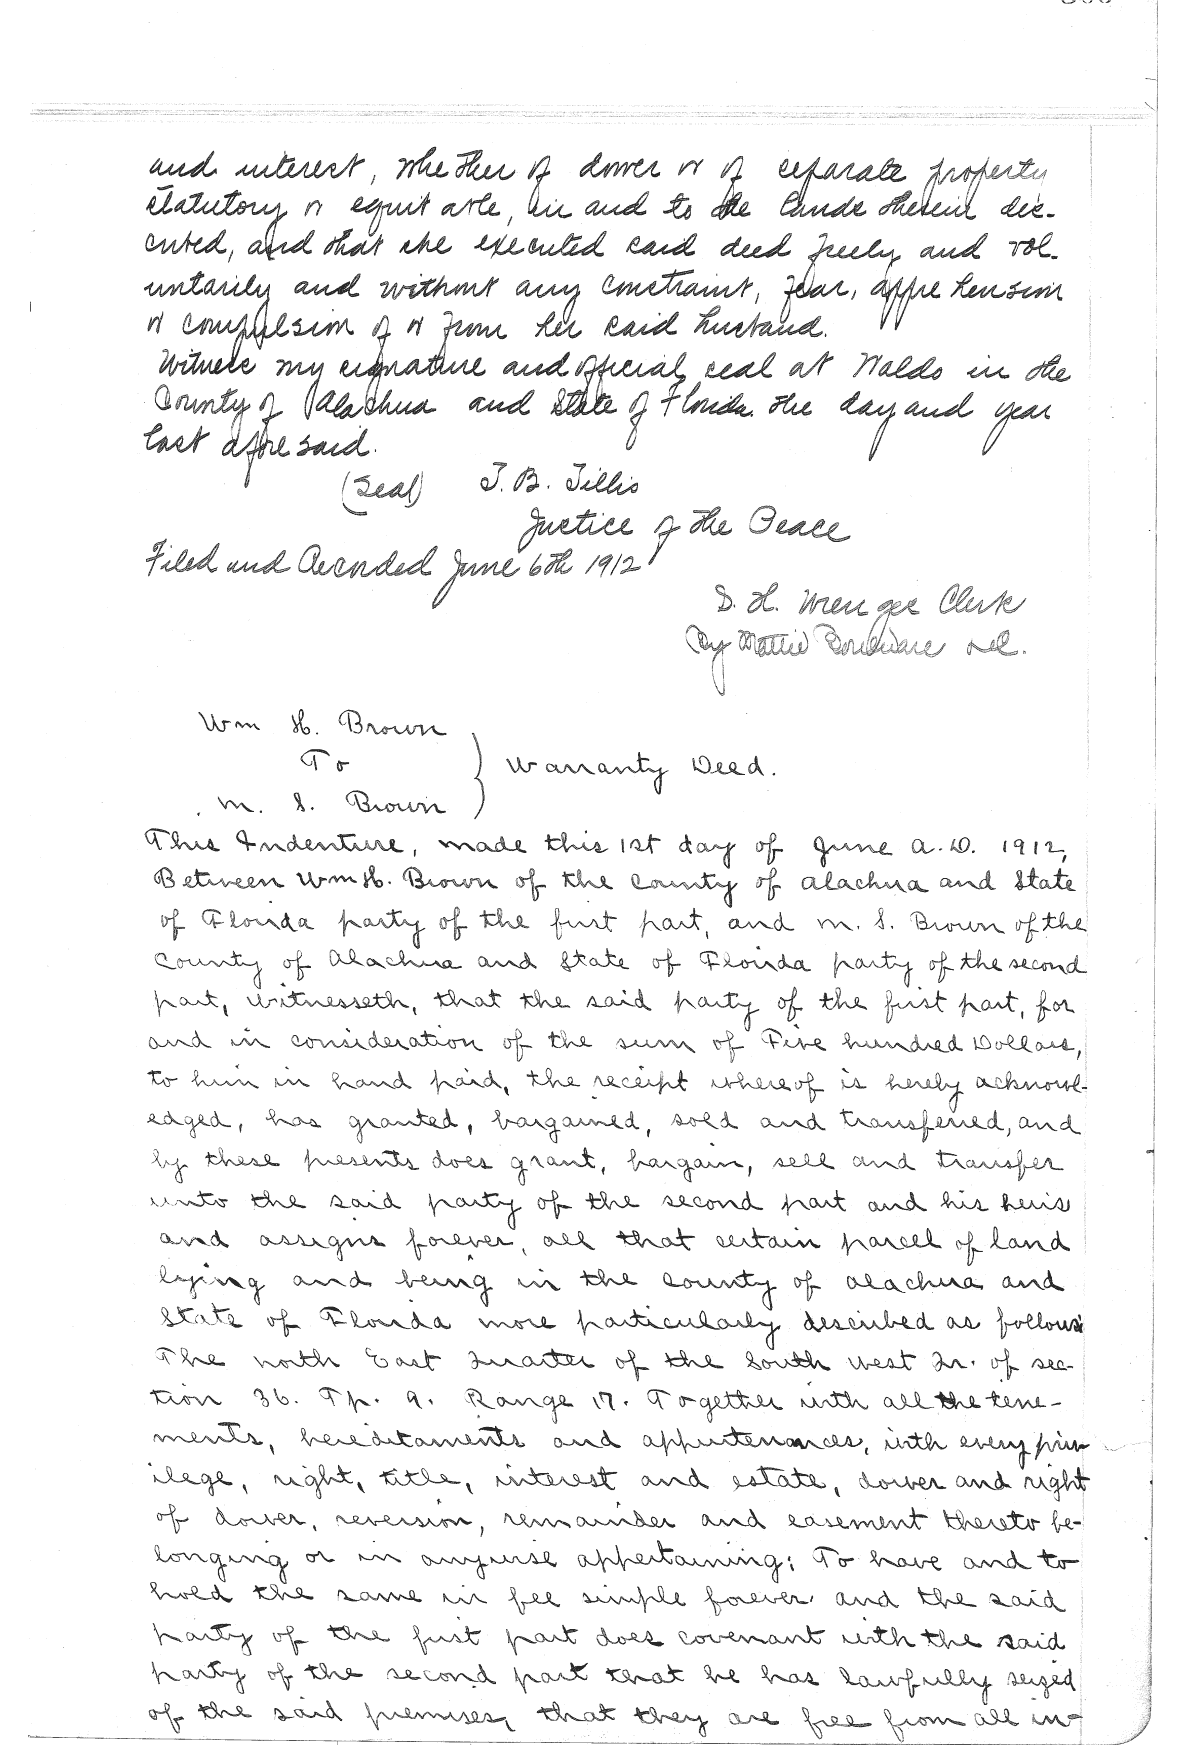 and interest, whether of dower or of separate property
statutory or equitable, in and to the lands therein des-
cribed, and that she executed said deed freely and vol-
untarily and without any constraint, fear, apprehension
or compulsion of or from her said husband.
Witness my signature and official seal at Waldo in the
County of Alachua and State of Florida the day and year
last aforesaid.
(Seal) T. B. Tillis
Justice of the Peace
Filed and Recorded June 6th 1912
S. H. Wienges Clerk
By Mattie Boulware D.C.
Wm H. Brown
To } Warranty Deed.
M. S. Brown
This Indenture, made this 1st day of June A. D. 1912,
Between Wm H. Brown of the County of Alachua and State
of Florida party of the first part, and M. S. Brown of the
County of Alachua and State of Florida party of the second
part, witnesseth, that the said party of the first part, for
and in consideration of the sum of Five hundred Dollars,
to him in hand paid, the receipt whereof is hereby acknowl-
edged, has granted, bargained, sold and transferred, and
by these presents does grant, bargain, sell and transfer
unto the said party of the second part and his heirs
and assigns forever, all that certain parcel of land
lying and being in the county of Alachua and
State of Florida more particularly described as follows:
The North East Quarter of the South West Qr. of sec-
tion 36. Tp. 9. Range 17. Together with all the tene-
ments, hereditaments and appurtenances, with every priv-
ilege, right, title, interest and estate, dower and right
of dower, reversion, remainder and easement thereto be-
longing or in anywise appertaining: To have and to
hold the same in fee simple forever. and the said
party of the first part does covenant with the said
party of the second part that he has lawfully seized
of the said premises, that they are free from all in-